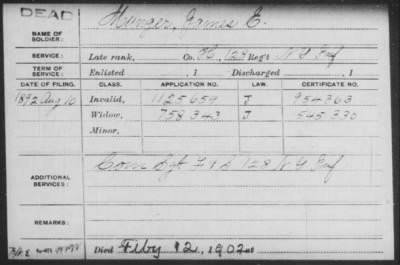 DEAD
NAME OF SOLDIER: Munger, James E.
SERVICE: Late rank, Co. 128 Reg't N.Y. Inf
TERM OF SERVICE: Enlisted , 1 Discharged , 1
DATE OF FILING. CLASS. APPLICATION NO. LAW. CERTIFICATE NO.
1892 Aug 10 Invalid, 1125659 J 954363
Widow, 758343 J 545330
Minor,
ADDITIONAL SERVICES: Com Sgt F & S 128 N.Y. Inf
REMARKS:
Died Feby 12, 1902 at